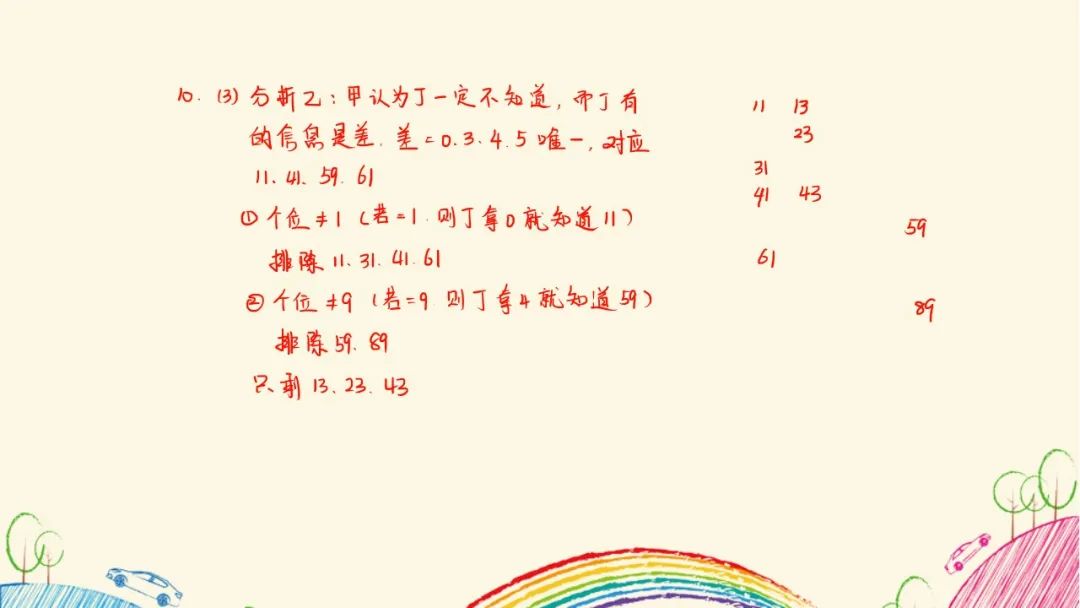 10. (3) 分析乙：甲认为丁一定不知道，而丁有
的信息是差. 差=0.3.4.5 唯一，对应
11.41. 59. 61
① 个位≠1 (若=1. 则丁拿0就知道11)
排除11.31.41.61
② 个位≠9 (若=9. 则丁拿4就知道59)
排除59.89
只剩13.23.43
11 13
23
31
41 43
59
61
89